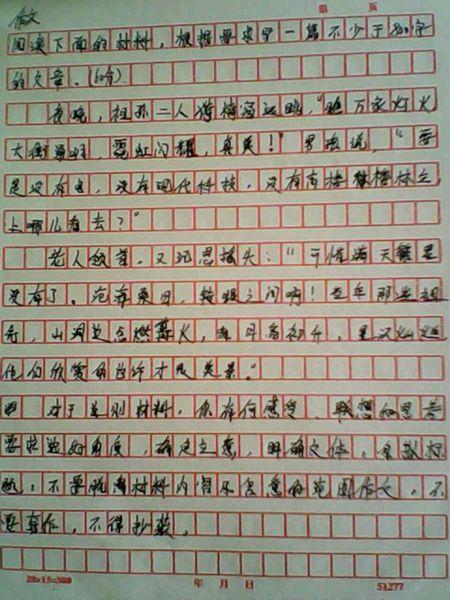 作文
页
阅读下面的材料,根据要求写一篇不少于800字
的文章。(60分)
夜晚,祖孙二人凭楼窗远眺,"瞧万家灯火
大街通明,霓虹闪耀,真美!"男孩说,"要
是没有电,没有现代科技,没有高楼林立
上哪儿看去?"
老人颔首,又沉思摇头:"可惜满天繁星
没有了。沧海桑田,转眼之间啊!当年那些祖
先,山洞边点燃篝火,看月高初升,星汉灿烂
他们欣赏的也许才是美景。"
对于这则材料,你有何感受、联想和思考
要求选好角度,确定立意,明确文体,自拟标
题:不要脱离材料内容及含意的范围作文,不
要套作,不得抄袭。
20x15=300
年 月 日
51277